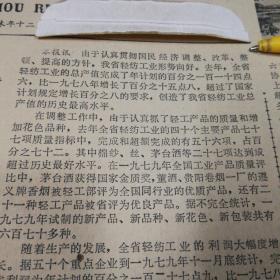 HOU R
年二十
本报讯 由于认真贯彻国民经济调整、改革、整
顿、提高的方针，我省轻纺工业形势向好。去年，全省
轻纺工业的总产值完成了年计划的百分之一百一十四点
六，比一九七八年增长了百分之十五点八，超过了国家
计划规定增长百分之八的要求，创造了我省轻纺工业总
产值的历史最高水平。
在调整工作中，由于认真抓了轻工产品的质量和增
加花色品种，去年全省轻纺工业的四十个主要产品七十
七项质量指标中，完成和超额完成的有五十六项，占百
分之七十三，其中棉纱、丝、茅台酒等二十七项达到或
超过历史最好水平。在一九七九年全国工业产品质量评
比中，茅台酒获得国家金质奖，董酒、贵阳卷烟一厂的遵
义牌香烟被轻工部评为全国同行业的优质产品，还有二
十一种轻工产品被省评为优良产品。据不完全统计，一
九七九年试制的新产品、新品种、新花色、新包装共有
六百七十多种。
随着生产的发展，全省轻纺工业的利润大幅度增
长，据五十个重点企业到一九七九年十一月底统计，